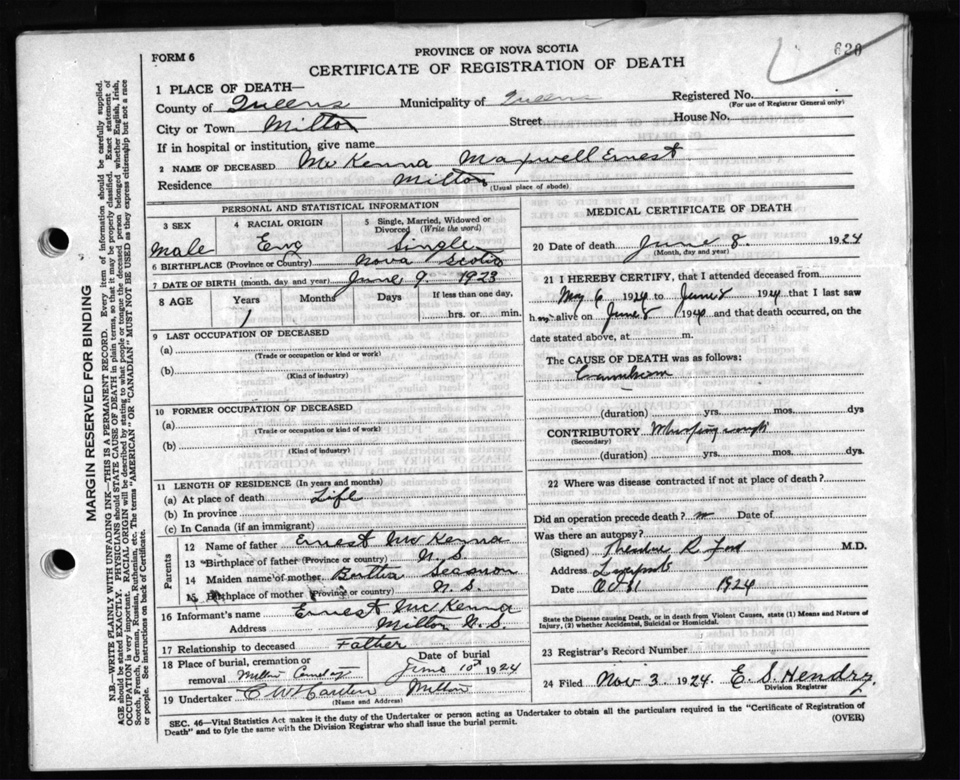 PROVINCE OF NOVA SCOTIA
FORM 6
CERTIFICATE OF REGISTRATION OF DEATH
626
1 PLACE OF DEATH—
County of Queens Municipality of Queens Registered No.
(For use of Registrar General only)
City or Town Milton Street House No.
If in hospital or institution, give name
2 NAME OF DECEASED McKenna Maxwell Ernest
Residence Milton (Usual place of abode)
MARGIN RESERVED FOR BINDING
N.B.—WRITE PLAINLY WITH UNFADING INK—THIS IS A PERMANENT RECORD. Every item of information should be carefully supplied.
AGE should be stated EXACTLY. PHYSICIANS should STATE CAUSE OF DEATH in plain terms, so that it may be properly classified. Exact statement of
OCCUPATION is very important. RACIAL ORIGIN will be described by stating to what people or tongue the deceased person belonged whether English, Irish,
Scotch, French, German, Russian, Ruthenian, etc. The terms "AMERICAN" OR "CANADIAN" MUST NOT BE USED as they express citizenship but not a race
or people. See instructions on back of Certificate.
PERSONAL AND STATISTICAL INFORMATION
3 SEX 4 RACIAL ORIGIN 5 Single, Married, Widowed or Divorced (Write the word)
Male Eng Single
6 BIRTHPLACE (Province or Country) Nova Scotia
7 DATE OF BIRTH (month, day and year) June 9. 1923
8 AGE Years Months Days If less than one day,
1 hrs. or min.
9 LAST OCCUPATION OF DECEASED
(a)
(Trade or occupation or kind or work)
(b)
(Kind of industry)
10 FORMER OCCUPATION OF DECEASED
(a)
(Trade or occupation or kind or work)
(b)
(Kind of industry)
11 LENGTH OF RESIDENCE (In years and months)
(a) At place of death Life
(b) In province
(c) In Canada (if an immigrant)
Parents
12 Name of father Ernest McKenna
13 Birthplace of father (Province or country) N. S.
14 Maiden name of mother Bertha
15 Birthplace of mother (Province or country) N. S.
16 Informant's name Ernest McKenna
Address Milton N. S.
17 Relationship to deceased Father
18 Place of burial, cremation or removal Date of burial
Milton 10th 1924
19 Undertaker Milton
(Name and Address)
MEDICAL CERTIFICATE OF DEATH
20 Date of death June 8. 1924
(Month, day and year)
21 I HEREBY CERTIFY, that I attended deceased from
May 6 1924 to June 8 1924 that I last saw
him alive on June 8 1924 and that death occurred, on the
date stated above, at m.
The CAUSE OF DEATH was as follows:
(duration) yrs. mos. dys
CONTRIBUTORY Whooping cough
(Secondary)
(duration) yrs. mos. dys.
22 Where was disease contracted if not at place of death?
Did an operation precede death? no Date of
Was there an autopsy?
(Signed) M.D.
Address
Date 1924
State the Disease causing Death, or in Death from Violent Causes, state (1) Means and Nature of
Injury, (2) whether Accidental, Suicidal or Homicidal.
23 Registrar's Record Number
24 Filed Nov 3 1924. E. S. Hendry.
Division Registrar
SEC. 46—Vital Statistics Act makes it the duty of the Undertaker or person acting as Undertaker to obtain all the particulars required in the "Certificate of Registration of
Death" and to fyle the same with the Division Registrar who shall issue the burial permit.
(OVER)